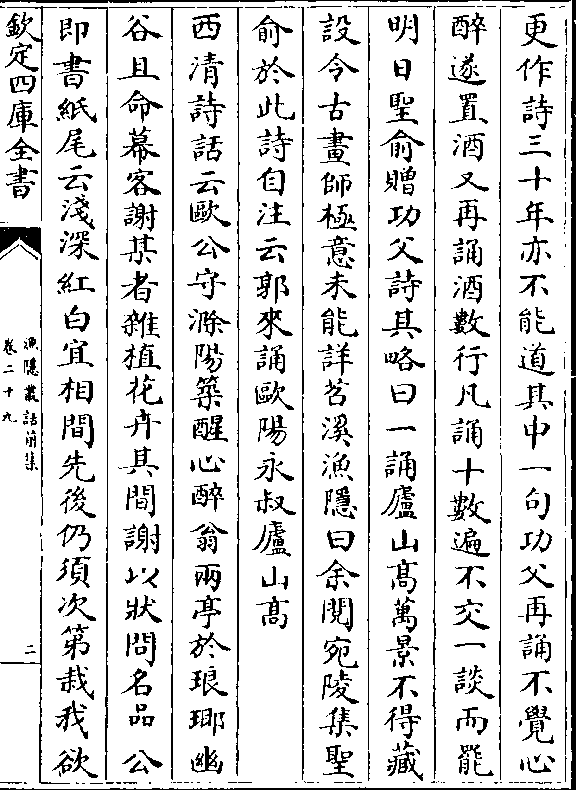 更作詩三十年亦不能道其中一句功父再誦不覺心
醉遂置酒又再誦酒數行凡誦十數遍不交一談而罷
明日聖俞贈功父詩其略曰一誦廬山髙萬景不得藏
設令古畫師極意未能詳苕溪漁隱曰余閱宛陵集聖
俞於此詩自注云郭來誦歐陽永叔廬山髙
西清詩話云歐公守滁陽築醒心醉翁兩亭於琅琊幽
谷且命幕客謝某者雜植花卉其間謝以狀問名品公
即書紙尾云淺深紅白宜相間先後仍須次第栽我欲
欽定四庫全書
漁隱叢話前集
卷二十九
二